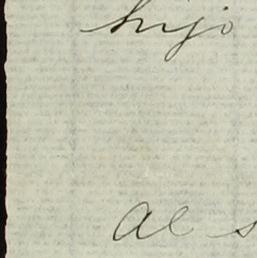 hijo
Al s